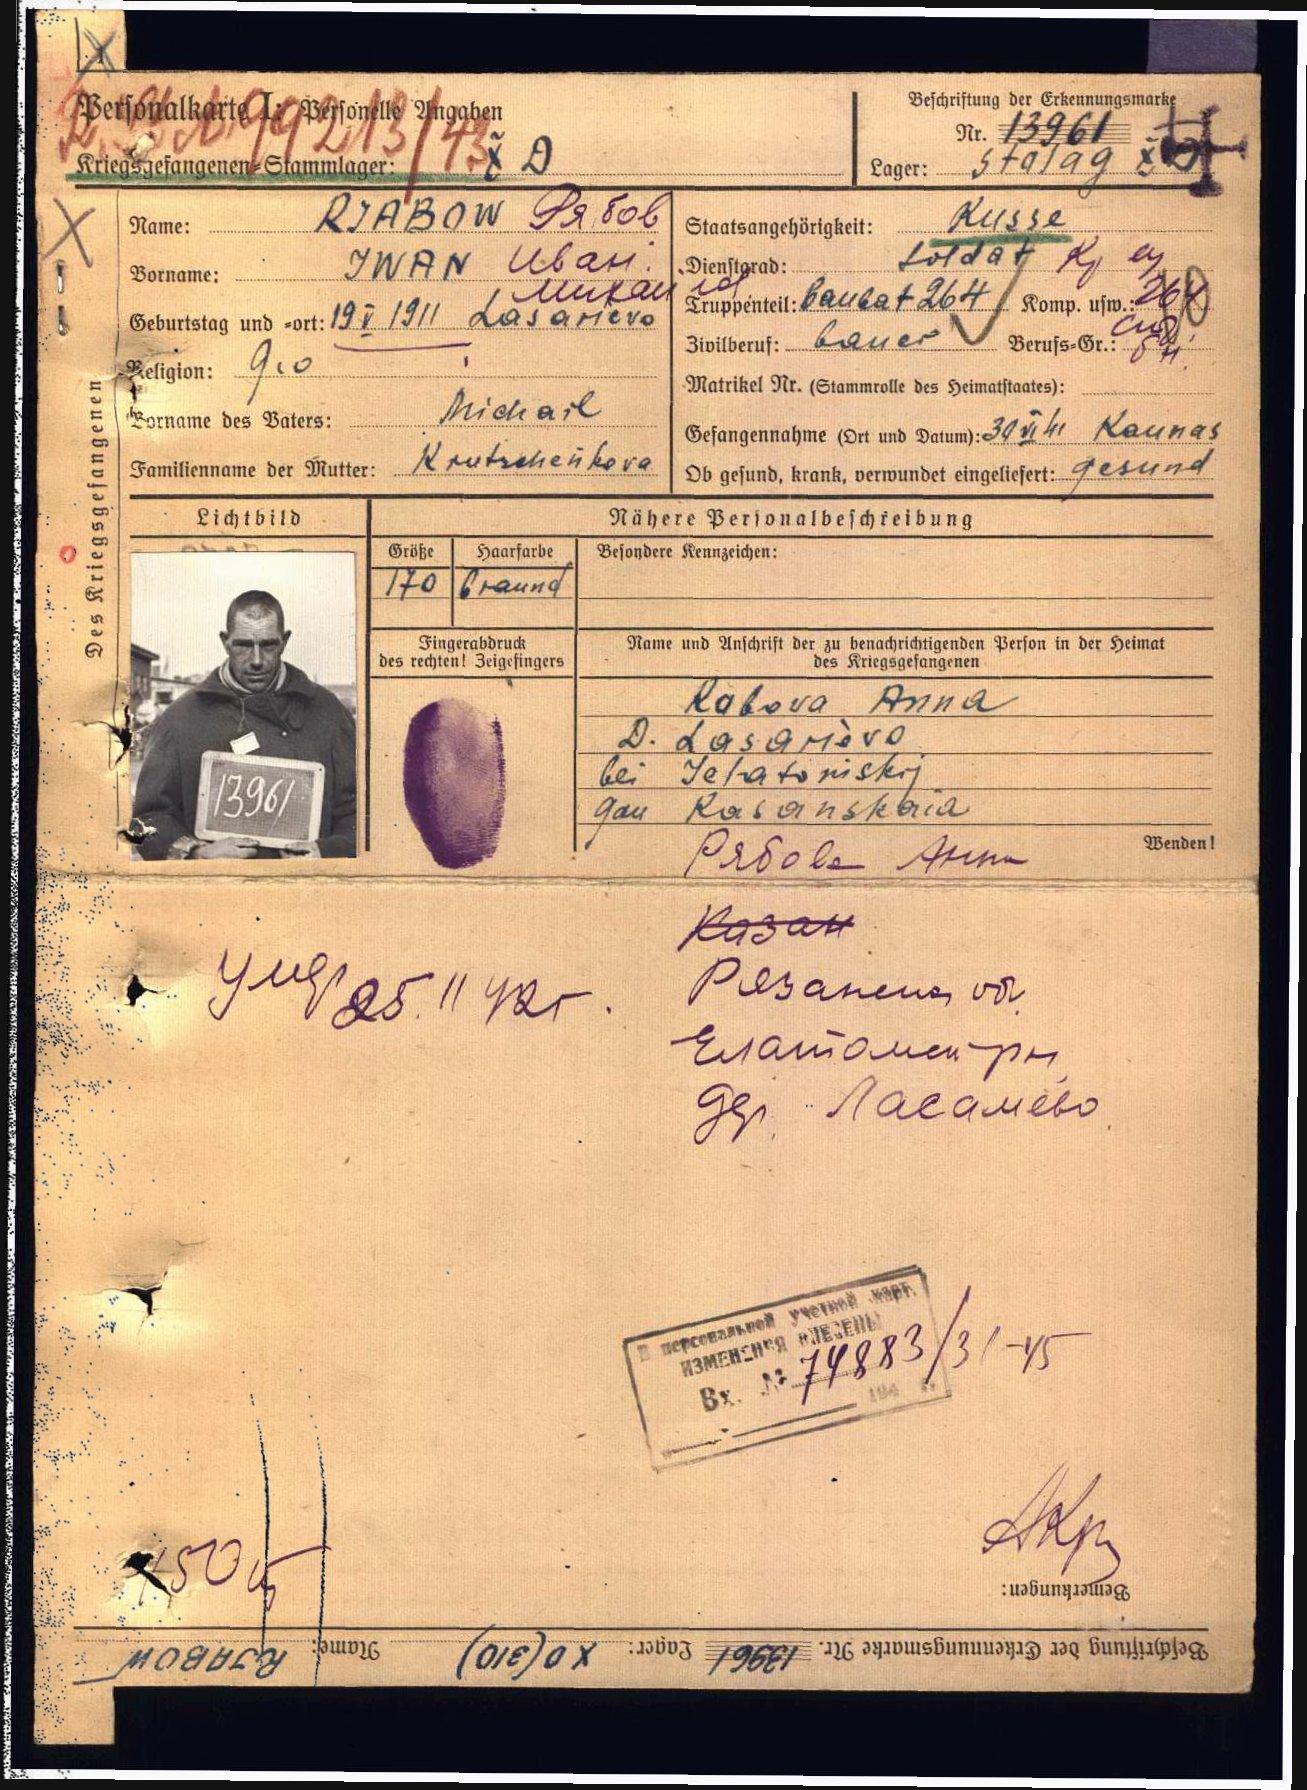 Personalkarte I: Personelle Angaben
Beschriftung der Erkennungsmarke
Nr. 13961
Kriegsgefangenen-Stammlager: X D
Lager: Stalag X D
Des Kriegsgefangenen
Name: RJABOW Рябов
Vorname: IWAN Иван
Geburtstag und -ort: 19 V 1911 Lasarievo
Religion: g.o
Vorname des Vaters: Michail
Familienname der Mutter: Krutschenkova
Staatsangehörigkeit: Russe
Dienstgrad: soldat
Truppenteil: baubat 264 Komp. usw.: 264
Zivilberuf: bauer Berufs-Gr.:
Matrikel Nr. (Stammrolle des Heimatstaates):
Gefangennahme (Ort und Datum): 30 VI 41 Kaunas
Ob gesund, krank, verwundet eingeliefert: gesund
Lichtbild
Nähere Personalbeschreibung
Größe Haarfarbe Besondere Kennzeichen:
170 braund
Fingerabdruck
des rechten! Zeigefingers
Name und Anschrift der zu benachrichtigenden Person in der Heimat
des Kriegsgefangenen
13961
Rabova Anna
D. Lasarièvo
bei Jelatomskij
gau Kasanskaia
Wenden!
Рябова Анна
Казан
умер 25.11 42г.
Рязанск об.
Елатомск рн
дер. Ласамево
В персональной учетной карт.
ИЗМЕНЕНИЯ ВНЕСЕНЫ
Вх. № 74883/31-45
194 г.
Bemerkungen:
Beschriftung der Erkennungsmarke Nr. 13961 Lager: X D (310) Name: RJABOW